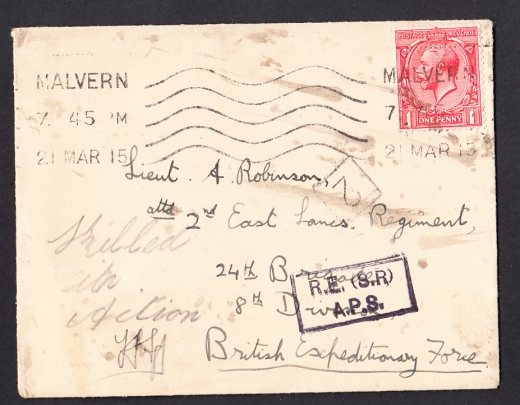 MALVERN
7. 45 PM
21 MAR 15
MALVER
7
21 MAR 15
POSTAGE REVENUE
1 ONE PENNY 1
Lieut. A. Robinson,
attd 2nd East Lancs. Regiment,
24th Brigade
8th Division
British Expeditionary Force
R.E. (S.R)
A.P.S.
2
Killed
in
Action